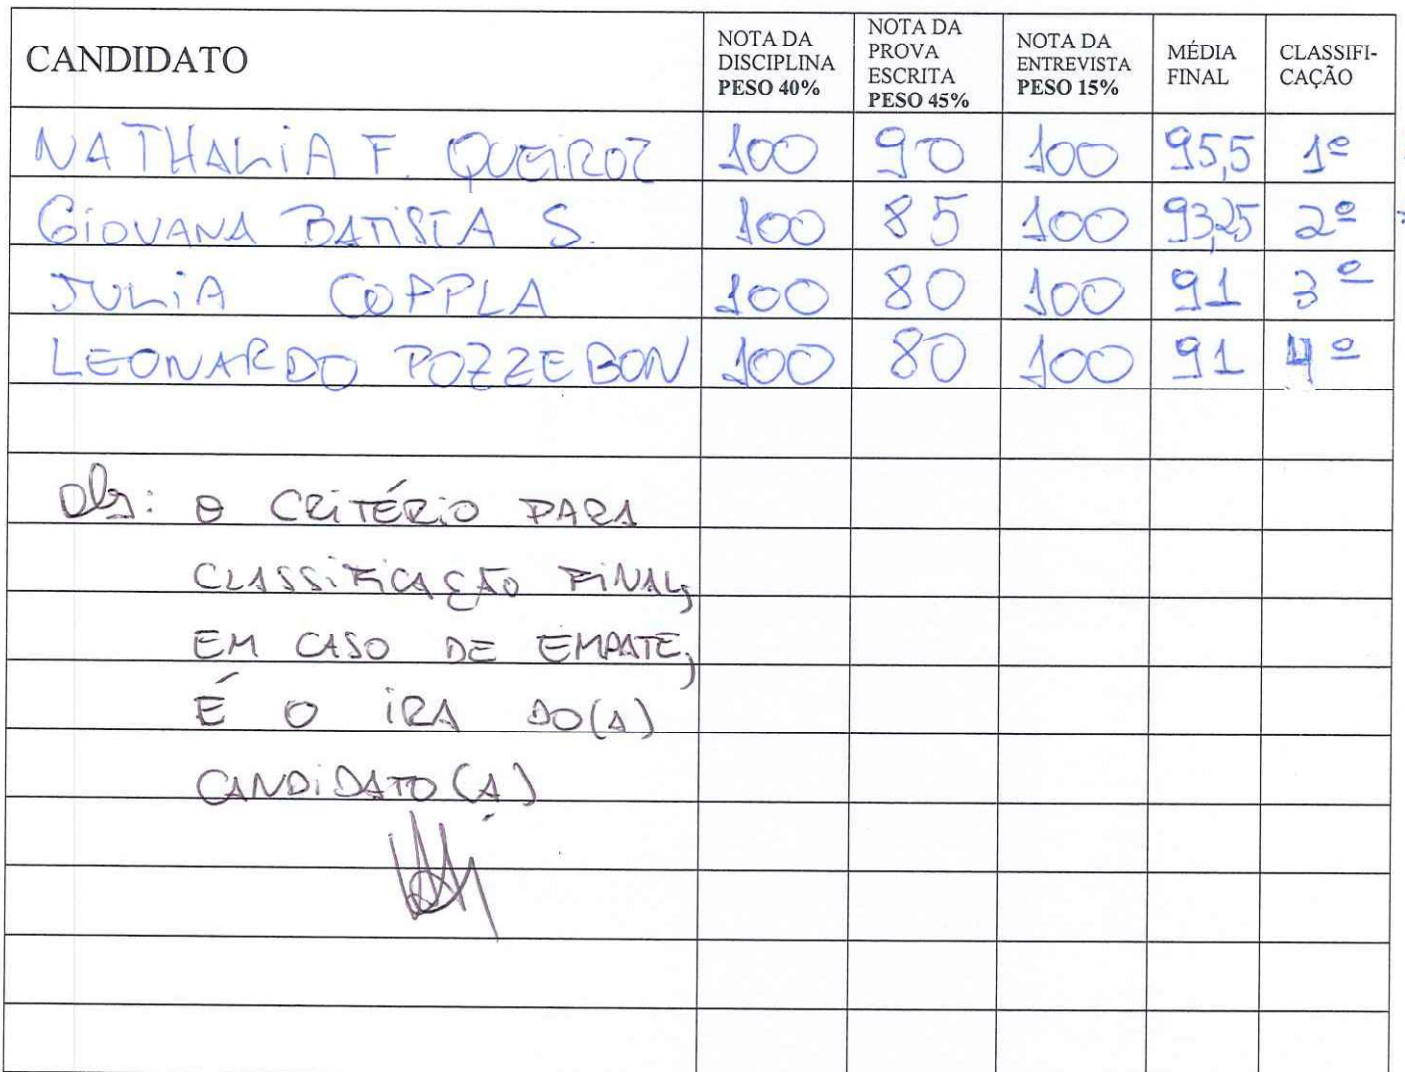 CANDIDATO NOTA DA DISCIPLINA PESO 40% NOTA DA PROVA ESCRITA PESO 45% NOTA DA ENTREVISTA PESO 15% MÉDIA FINAL CLASSIFI-CAÇÃO
NATHALIA F. QUEIROZ 100 90 100 95,5 1º
GIOVANA BATISTA S. 100 85 100 93,25 2º
JULIA COPPLA 100 80 100 91 3º
LEONARDO POZZEBON 100 80 100 91 4º
Obs: O CRITÉRIO PARA
CLASSIFICAÇÃO FINAL,
EM CASO DE EMPATE,
É O IRA DO(A)
CANDIDATO(A)